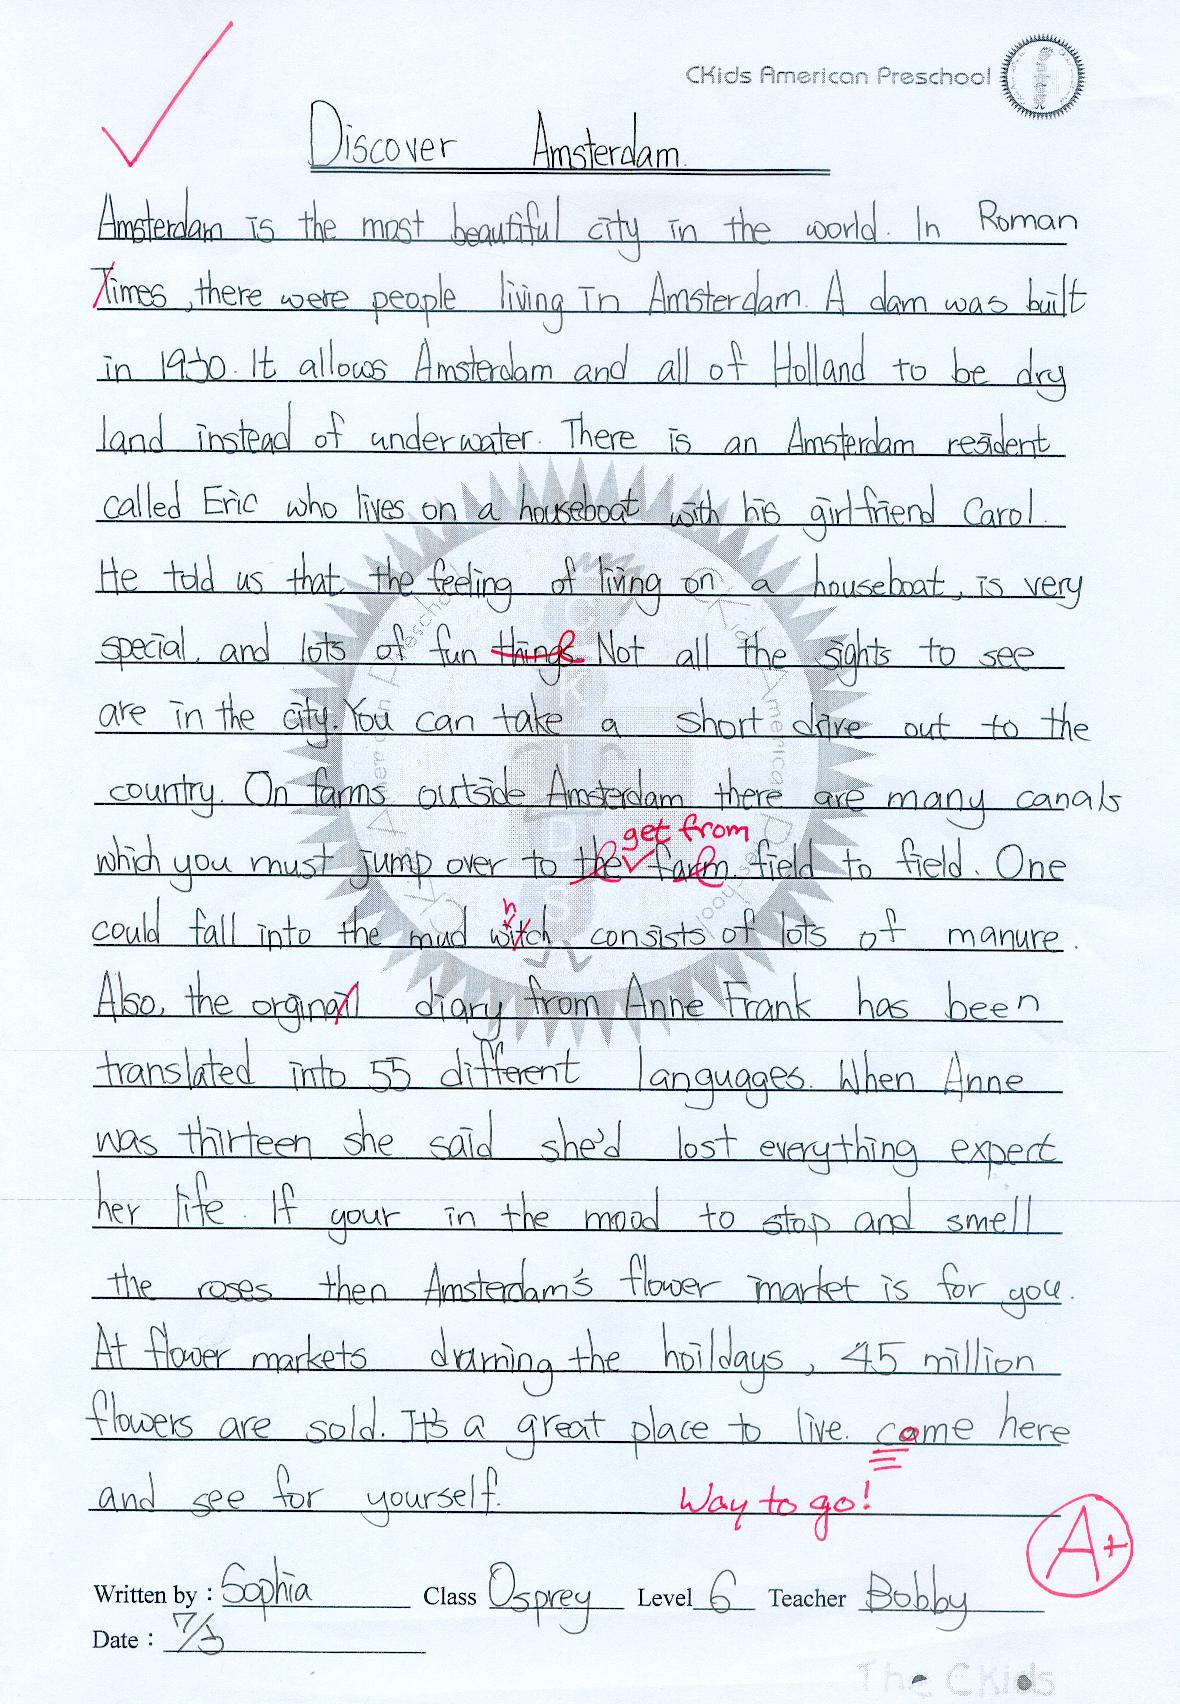 CKids American Preschool
Discover Amsterdam.
Amsterdam is the most beautiful city in the world. In Roman
Times, there were people living in Amsterdam. A dam was built
in 1930. It allows Amsterdam and all of Holland to be dry
land instead of underwater. There is an Amsterdam resident
called Eric who lives on a houseboat with his girlfriend Carol.
He told us that the feeling of living on a houseboat, is very
special, and lots of fun things Not all the sights to see
are in the city. You can take a short drive out to the
country. On farms outside Amsterdam there are many canals
get from
which you must jump over to the farm field to field. One
h
could fall into the mud witch consists of lots of manure.
Also, the orginail diary from Anne Frank has been
translated into 55 different languages. When Anne
was thirteen she said she'd lost everything expert
her life. If your in the mood to stop and smell
the roses then Amsterdam's flower market is for you.
At flower markets druming the hoildays, 45 million
flowers are sold. It's a great place to live. come here
and see for yourself. Way to go!
A+
Written by : Sophia Class Osprey Level 6 Teacher Bobby
Date :
The CKids